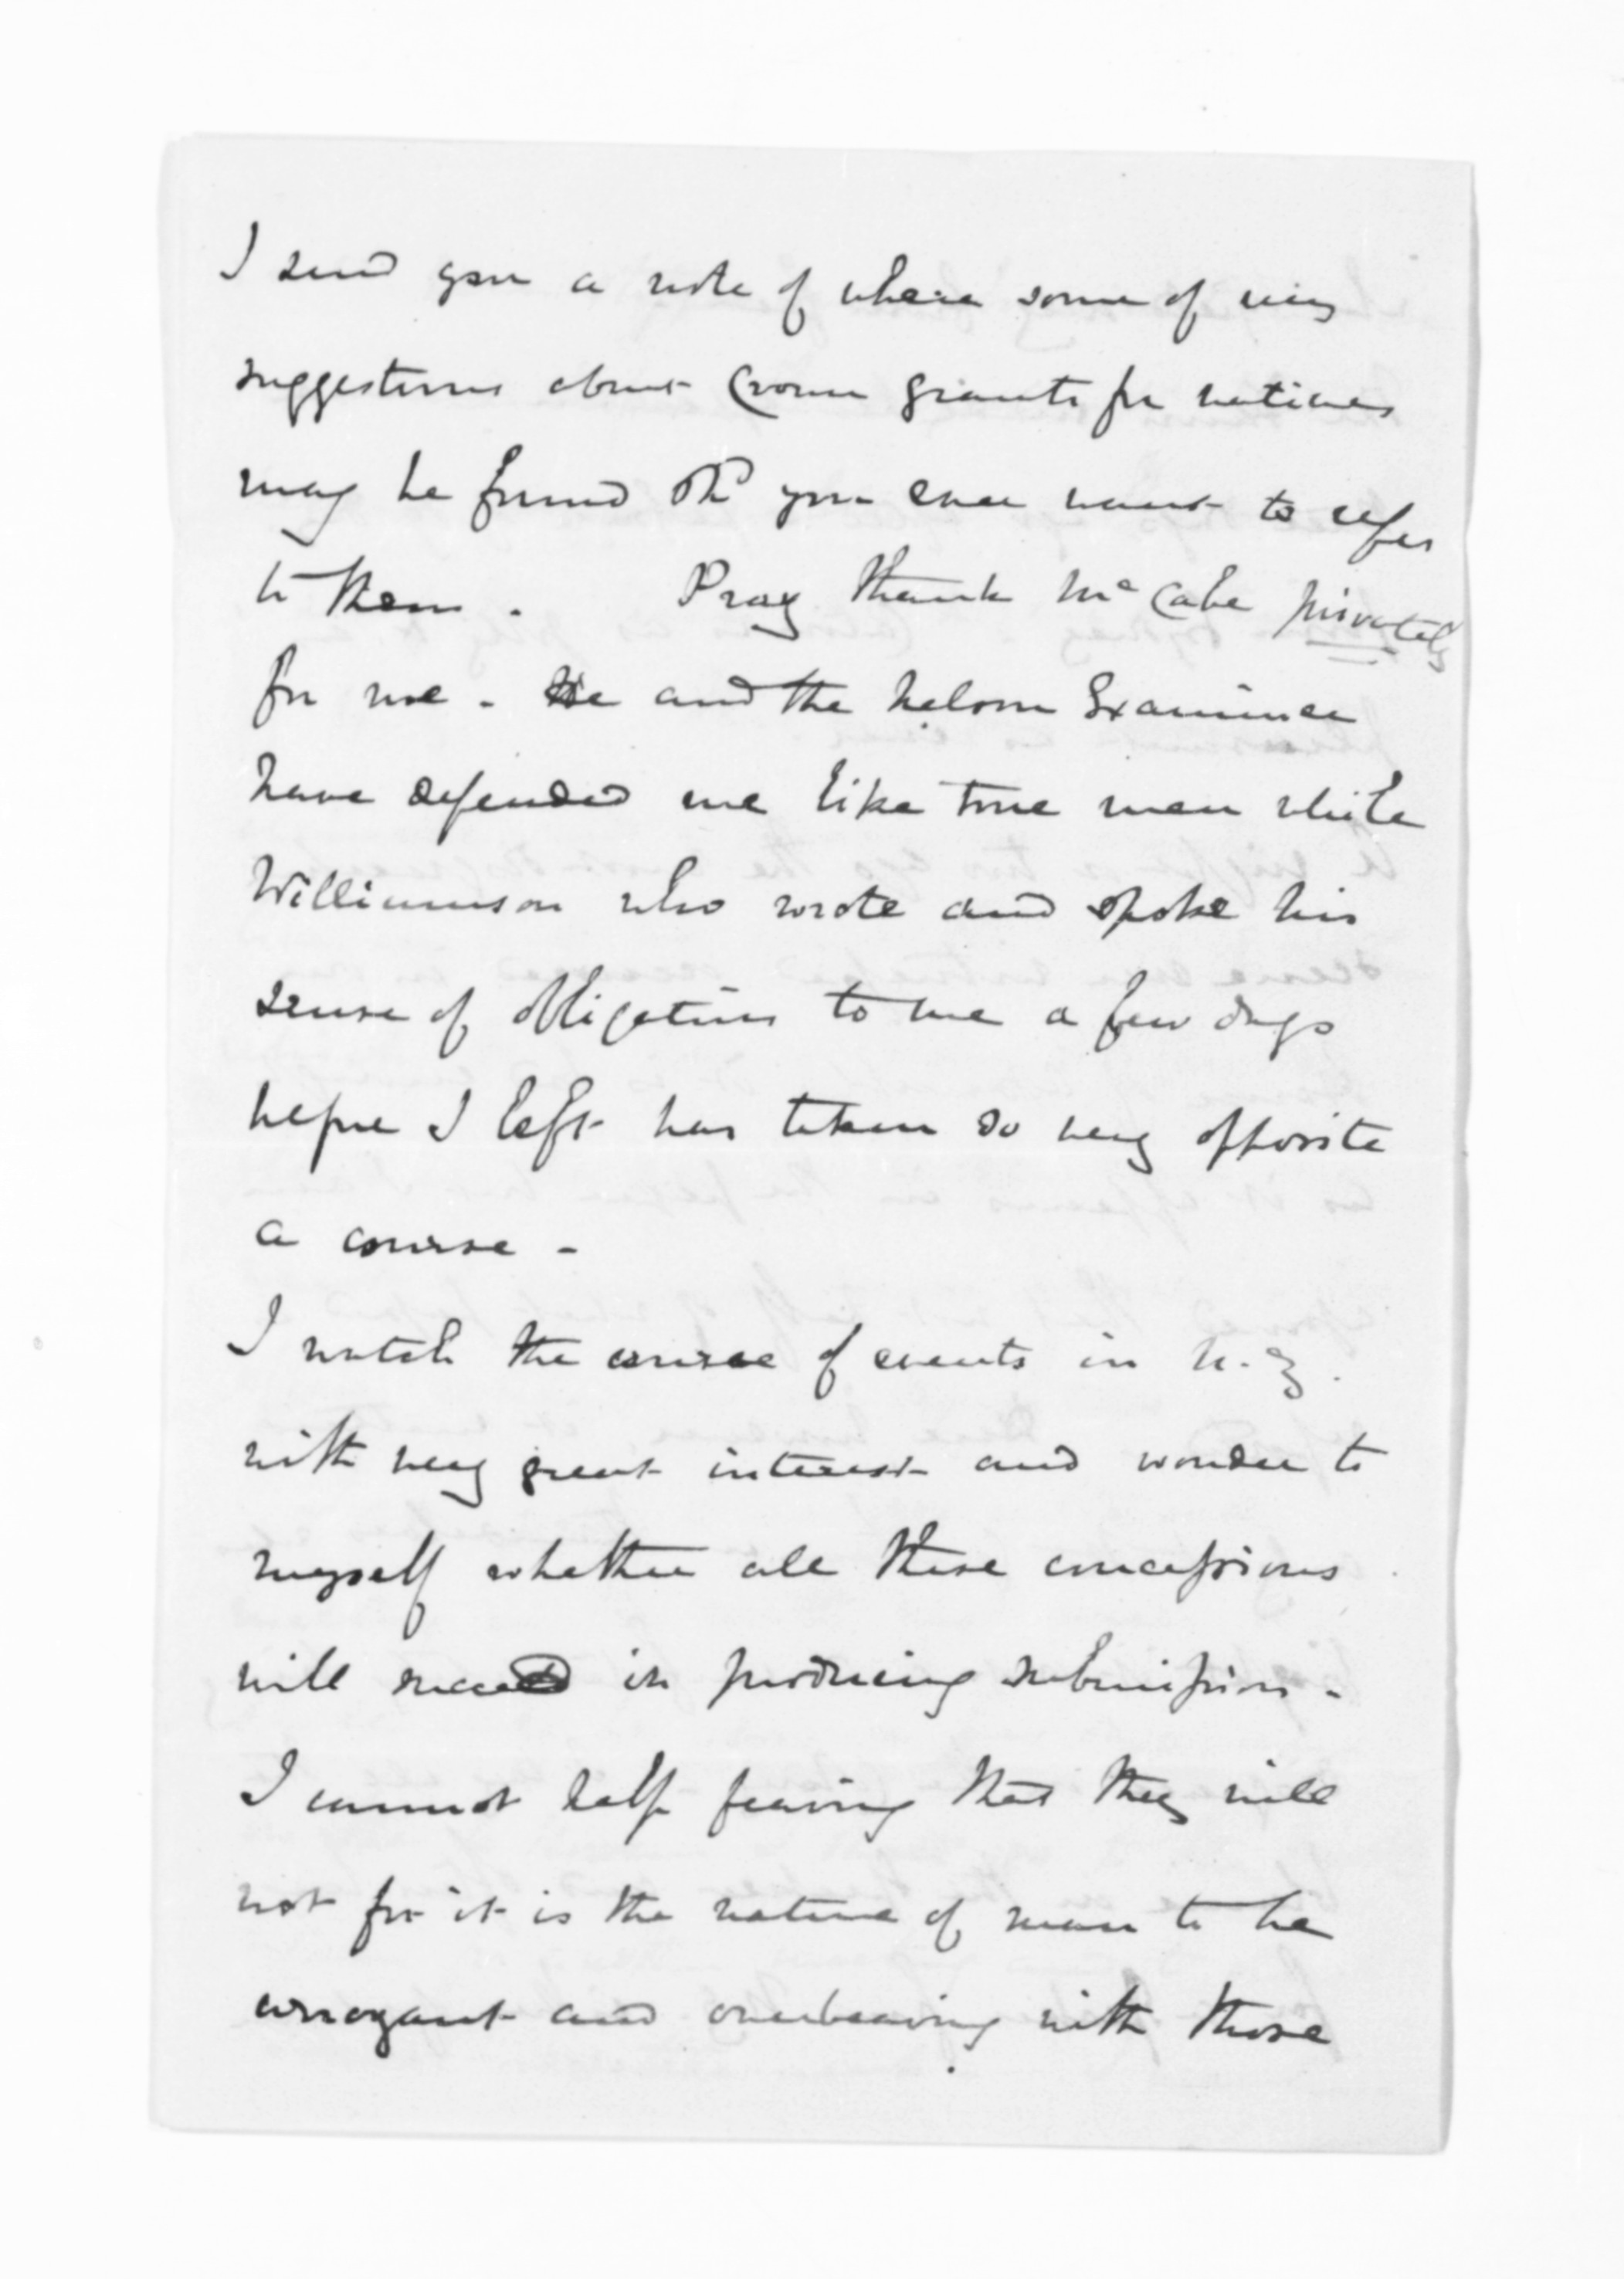 I send you a note of where some of my
suggestions about Crown grants for natives
may be found if you ever want to refer
to them. Pray thank McCabe privately
for me. He and the Nelson Examiner
have defended me like true men while
Williamson who wrote and spoke his
sense of obligations to me a few days
before I left has taken so very opposite
a course -
I watch the course of events in N.Z.
with very great interest and wonder to
myself whether all these concessions
will succeed in producing submission -
I cannot help fearing that they will
not for it is the nature of man to be
arrogant and overbearing with those